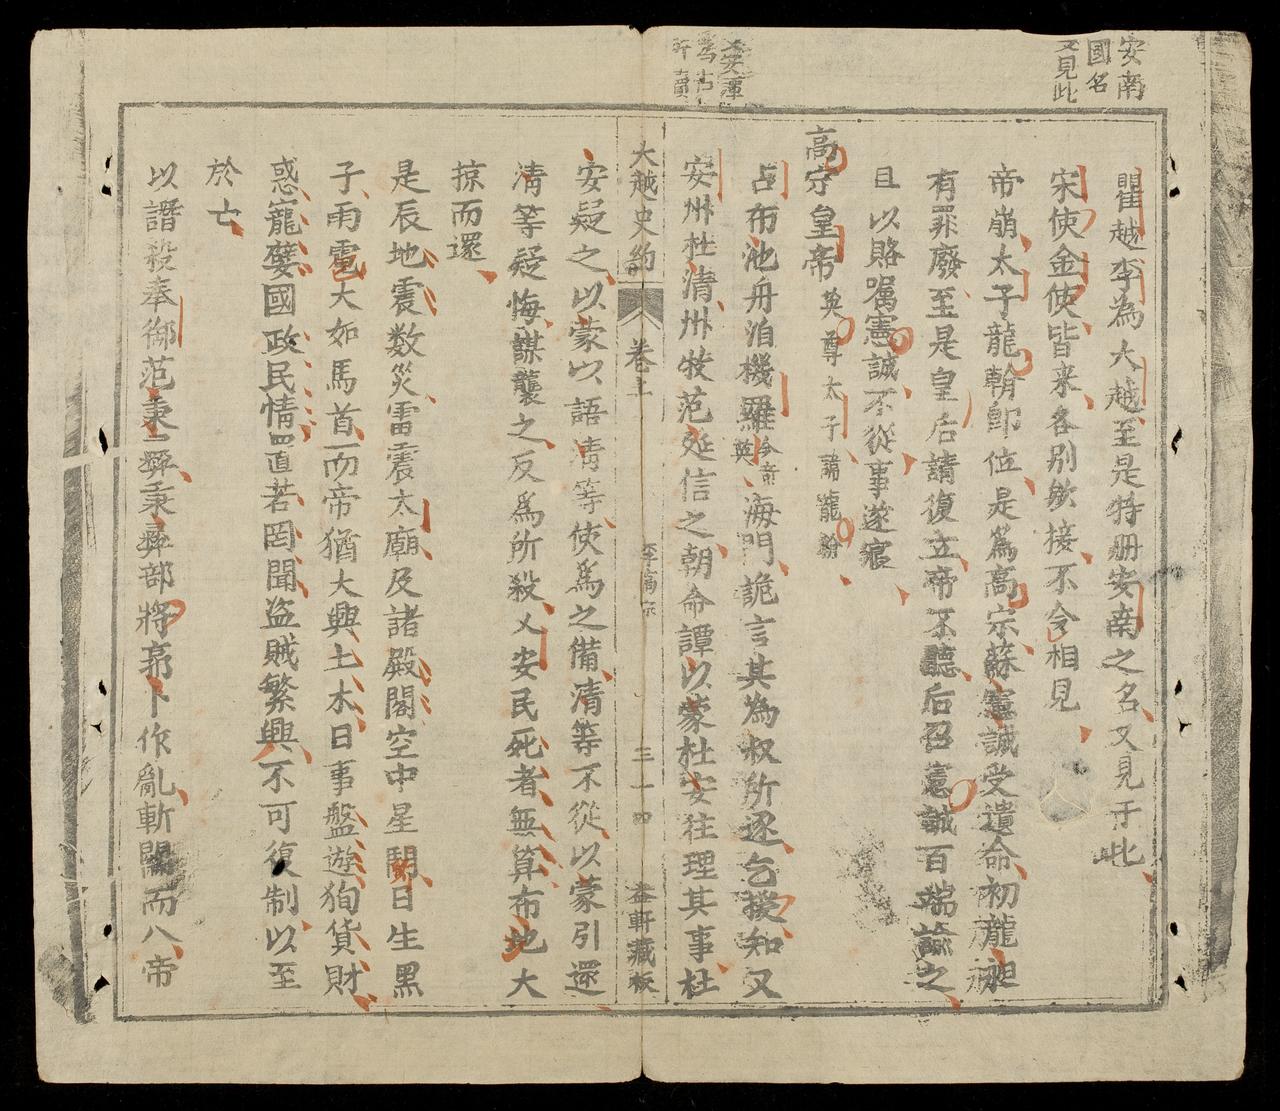 安南
國名
又見此
瞿越李為大越至是特册安南之名又見于此
宋使金使皆来各别欵接不令相見
帝崩太子龍𣉙即位是爲高宗蘇憲誠受遺命初龍昶
有罪廢至是皇后請復立帝不聽后召憲誠百端諭之
且以賂嘱憲誠不從事遂寢
高宗皇帝英尊太子諱龍𣉙
占布池舟泊機羅今奇英海門詭言其為叔所逐乞援知乂
安州杜清州牧范延信之朝命譚以蒙杜安往理其事杜
大越史約 卷上 李高宗 三十四 益軒藏板
安疑之以蒙以語清等使爲之備清等不從以蒙引還
清等疑悔謀襲之反爲所殺乂安民死者無算布地大
掠而還
是辰地震数災雷震太廟及諸殿閣空中星鬪日生黑
子雨雹大如馬首而帝猶大興土木日事盤遊狥貨財
惑寵嬖國政民情置若罔聞盗賊繁興不可復制以至
於亡
以譖殺奉御范秉彝秉彝部將郭卜作亂斬關而入帝